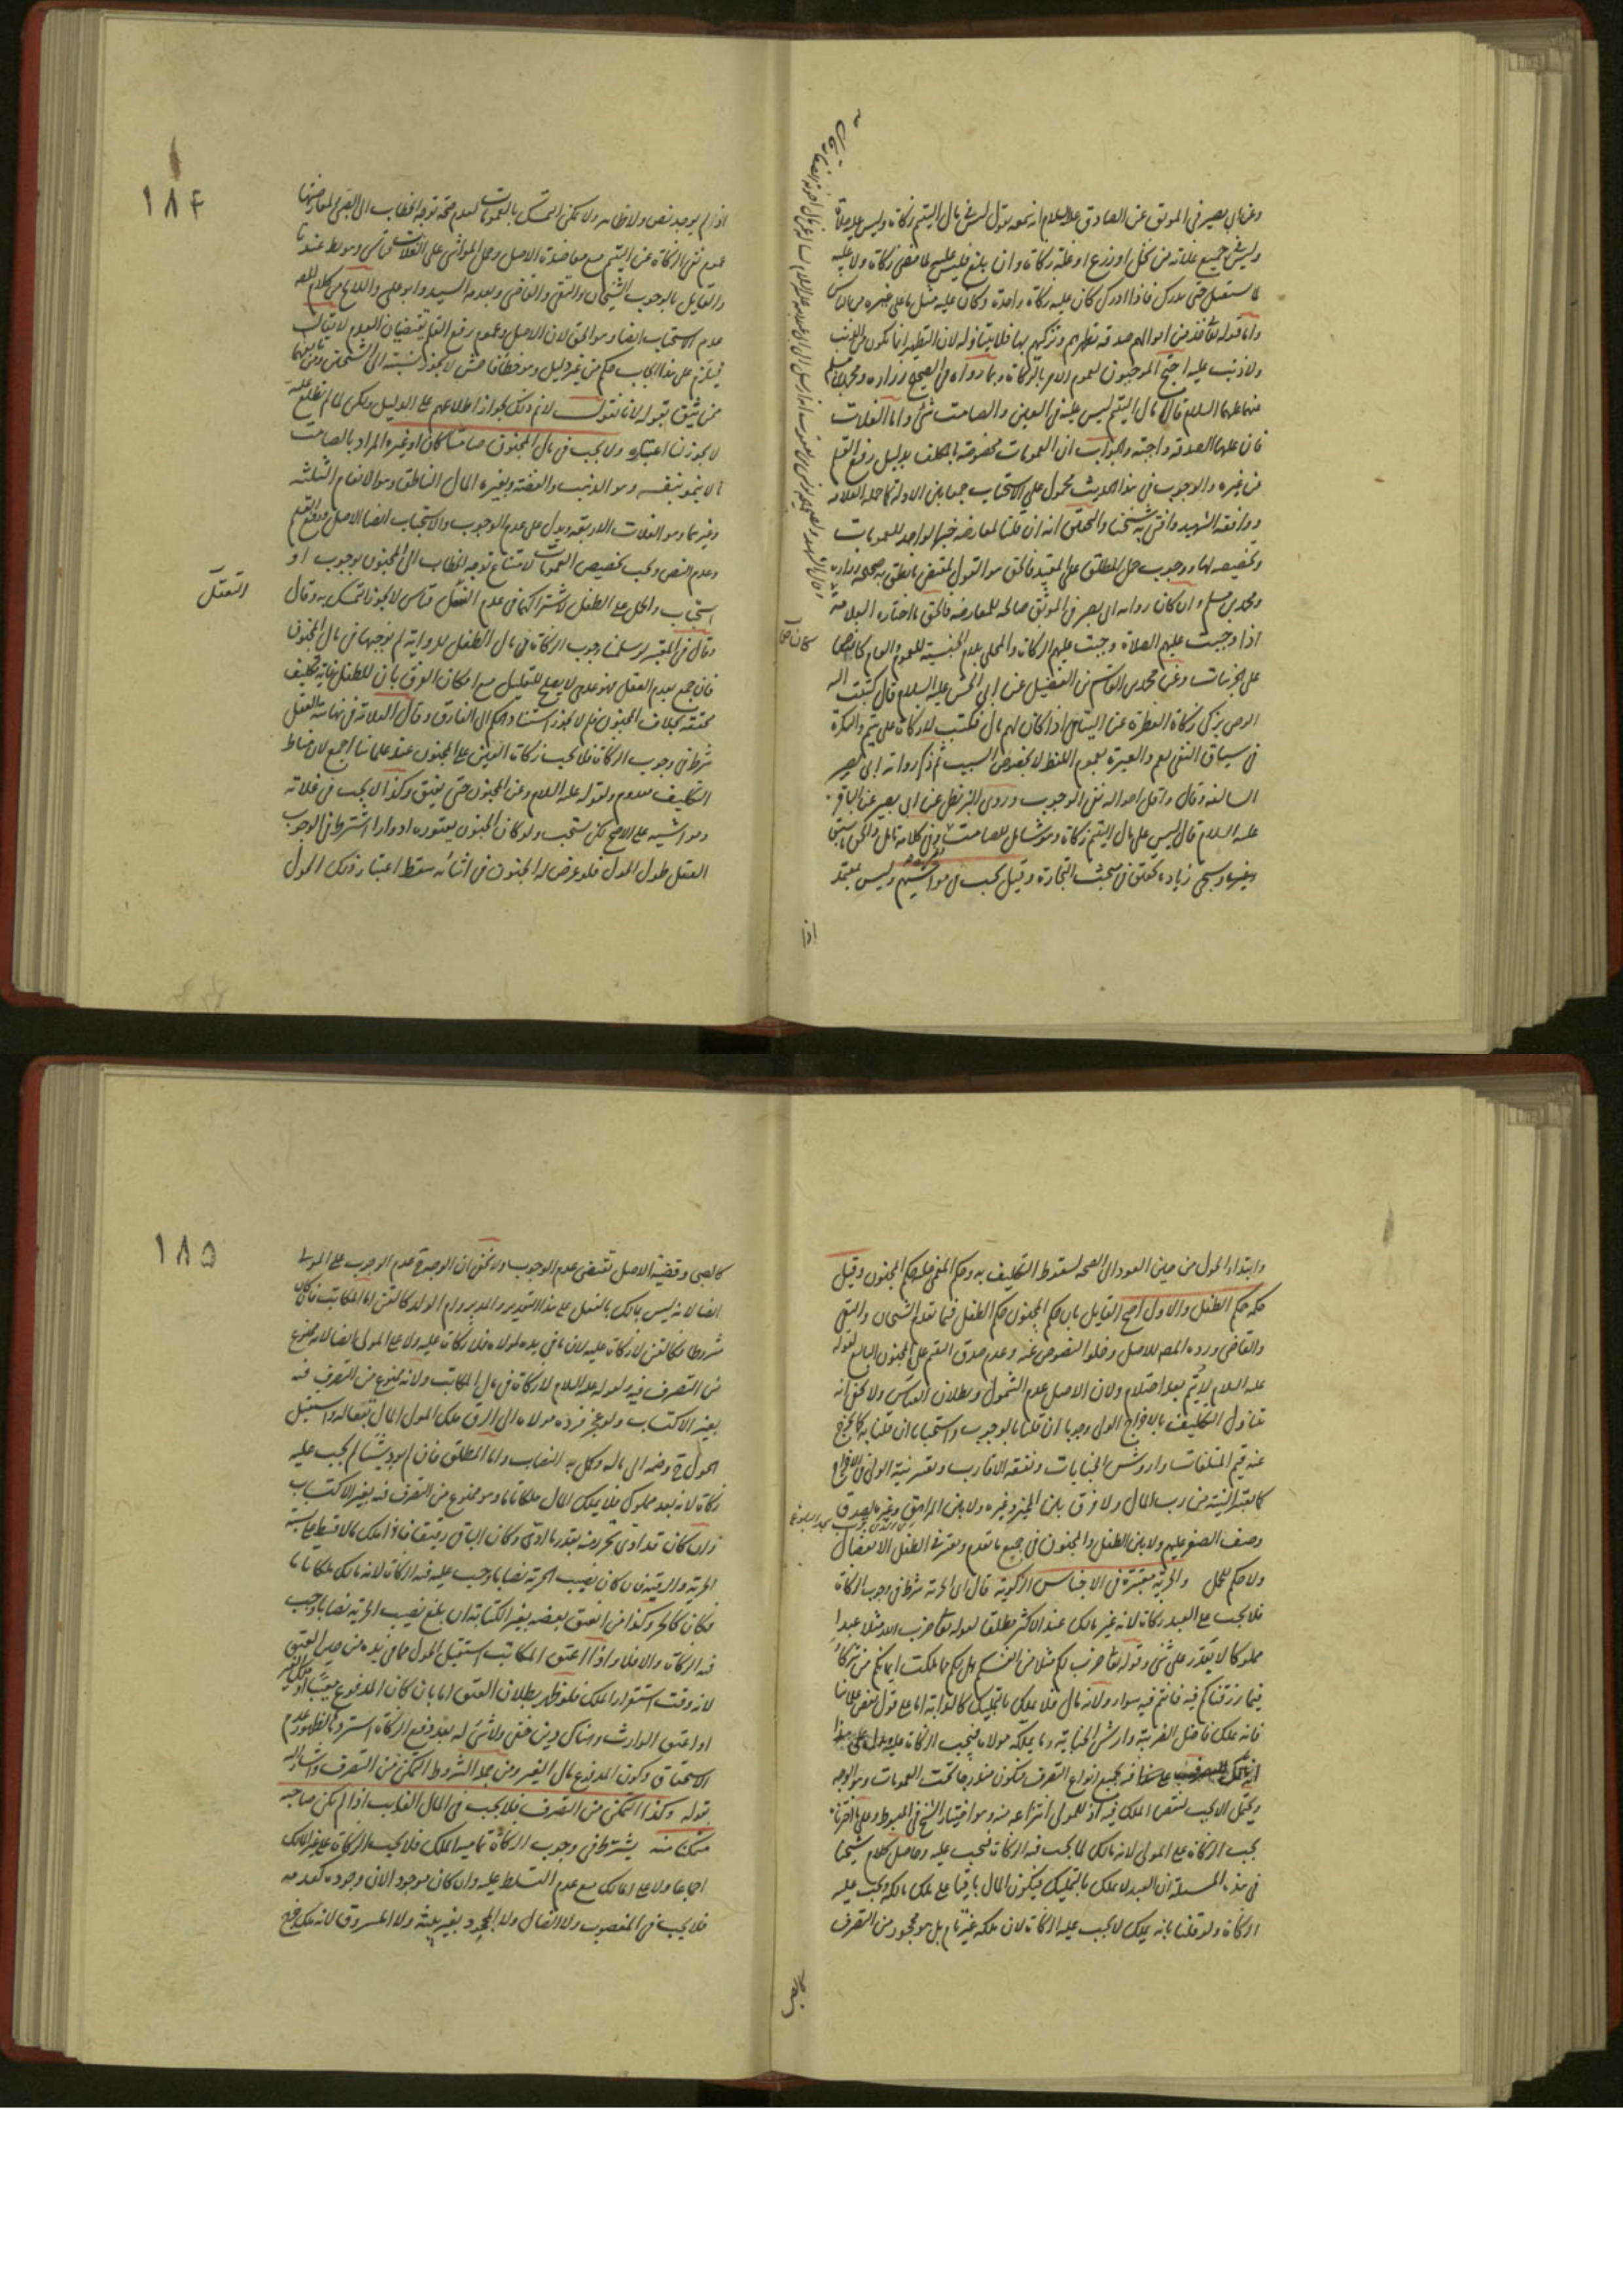 وعن ابي بصير في الموثق عن الصادق عليه السلام انه سمعه يقول ليس في مال اليتيم زكاة وليس عليه صلاة
وليس على جميع غلاته من نخل او زرع او غلة زكاة وان بلغ فليس عليه لما مضى زكاة ولا عليه
لما يستقبل حتى يدرك فاذا ادرك كان عليه زكاة واحدة وكان عليه مثل ما على غيره من الناس
واما قوله تعالى خذ من اموالهم صدقة تطهرهم وتزكيهم بها فلا يتناوله لان التطهير انما يكون من الذنب
ولا ذنب عليه احتج الموجبون لعموم الامر بالزكاة وبما رواه في الصحيح زرارة ومحمد بن مسلم
عنهما عليهما السلام قالا مال اليتيم ليس عليه في العين والصامت شئ واما الغلات
فان عليها الصدقة واجبة والجواب ان العمومات مخصوصة بالمكلف بدليل رفع القلم
عن غيره والوجوب في هذا الحديث محمول على الاستحباب جمعا بين الادلة كما حمله العلامة
ووافقه الشهيد وافتى به شيخنا والتحقيق انه ان قلنا لمعارضة خبر الواحد للعمومات
وتخصيصه لها ووجوب حمل المطلق على المقيد فالحق هو القول بمقتضى ما نطق به صحيحة زرارة
ومحمد بن مسلم وان كان رواية ابي بصير في الموثق صالحة للمعارضة فالحق ما اختاره العلامة
اذا وجبت عليهم الصلاة وجبت عليهم الزكاة والمحلى بلام الجنسية للعموم والعام
على الجزئيات وعن محمد بن القاسم بن الفضيل عن ابي الحسن عليه السلام قال كتبت اليه
الوصي يزكي زكاة الفطرة عن اليتامى اذا كان لهم مال فكتب لا زكاة على يتيم والنكرة
في سياق النفي تعم والعبرة بعموم اللفظ لا بخصوص السبب ثم ذكر رواية ابي بصير
السالفة وقال واقل احواله نفي الوجوب وروى البزنطي عن ابي بصير عن الباقر
عليه السلام قال ليس على مال اليتيم زكاة وهو شامل للصامت وفي كلامه تامل والحق ما سبق
وسيجئ زيادة تحقيق في مبحث التجارة وقيل تجب في مواشيهم وليس بمعتمد
اذا
١٨٤
اذ لم يوجد نص ولا ظاهر ولا يمكن التمسك بالعمومات لعدم صحة توجه الخطاب الى الصبي لمعارضتها
عموم نفي الزكاة عن اليتيم مع معاضدة الاصل وحمل المواشي على الغلات قياس وهو باطل عندنا
والقايل بالوجوب الشيخان والتقي والقاضي وبعدمه السيد وابو علي واللايح من كلام المص
عدم الاستحباب ايضا وهو الحق لان الاصل وعموم رفع القلم يقتضيان العدم لا يقال
فيلزم على هذا ايجاب حكم من غير دليل وهو خطأ فاحش لا يجوز نسبته الى الشيخين ومن تبعهما
ممن يثق بقوله لانا نقول لا يلزم ذلك لجواز اطلاعهم على الدليل ولكن لما لم نطلع عليه
لا يجوز لنا اعتباره ولا تجب في مال المجنون صامتا كان او غيره المراد بالصامت
ما لا ينمو بنفسه وهو الذهب والفضة وبغيره المال الناطق وهو الانعام الثلثة
وغيرهما وهو الغلات الاربعة ويدل على عدم الوجوب والاستحباب ايضا الاصل ورفع القلم
وعدم النص ويجب تخصيص العمومات لامتناع توجه الخطاب الى المجنون بوجوب او
استحباب والحمل على الطفل لاشتراكهما في عدم التعقل قياس لا يجوز التمسك به وقال
التعقل
وقال في المعتبر لو سلمنا وجوب الزكاة في مال الطفل للرواية لم نوجبها في مال المجنون
فان جمع بعدم العقل فهو عدمي لا يصلح للتعليل مع امكان الفرق بان للطفل غاية تكليف
محققة بخلاف المجنون فلم لا يجوز استناد الحكم الى الفارق وقال العلامة في نهايته العقل
شرط في وجوب الزكاة فلا تجب زكاة النقدين على المجنون عند علمائنا اجمع لان مناط
التكليف معدوم ولقوله عليه السلام وعن المجنون حتى يفيق وكذا لا تجب في غلاته
ومواشيه على الاصح لكن يستحب ولو كان المجنون يعتوره ادوارا اشترط في الوجوب
العقل طول الحول فلو عرض له الجنون في اثنائه سقط اعتبار ذلك الحول
وابتداء الحول من حين العود الى الصحة لسقوط التكليف به وحكم المغمى عليه حكم المجنون وقيل
حكمه حكم الطفل والاول اصح القايل بان حكم المجنون حكم الطفل فيما تقدم الشيخان والتقي
والقاضي ورده المص للاصل وخلو النصوص عنه وعدم صدق اليتيم على المجنون البالغ لقوله
عليه السلام لا يتم بعد احتلام ولان الاصل عدم الشمول وبطلان القياس ولا يخفى انه
تناول التكليف بالاخراج الولي وجوبا ان قلنا بالوجوب واستحبابا ان قلنا به كما يخرج
عنه قيم المتلفات واروش الجنايات ونفقة الاقارب وتعتبر نية الولي في الاخراج
كما تعتبر النية من رب المال ولا فرق بين المميز وغيره ولا بين المراهق وغيره لصدق
وصف الصغر عليهم ولا بين الطفل والمجنون في جميع ما تقدم ويعتبر في الطفل الانفصال
ولا حكم للحمل والحرية معتبرة في الاجناس الزكوية قال اي الحرية شرط في وجوب الزكاة
فلا تجب على العبد زكاة لانه غير مالك عند الاكثر مطلقا لقوله تعالى ضرب الله مثلا عبدا
مملوكا لا يقدر على شئ وقوله تعالى ضرب لكم مثلا من انفسكم هل لكم مما ملكت ايمانكم من شركاء
فيما رزقناكم فانتم فيه سواء ولانه مال فلا يملك بالتمليك كالدابة اما على قول بعض علمائنا
فانه يملك فاضل الضريبة وارش الجناية وما يملكه مولاه فيجب الزكاة عليه
فيه بجميع انواع التصرف فيكون مندرجا تحت العمومات وهو الوجه
ويحتمل ان لا تجب لنقص الملك فيه اذ للمولى انتزاعه منه وهو اختيار الشيخ في المبسوط وعلى ما اخترناه
تجب الزكاة على المولى لانه مالك لما تجب فيه الزكاة فتجب عليه وحاصل كلام شيخنا
في هذه المسئلة ان العبد لا يملك بالتمليك فيكون المال باقيا على ملك مالكه وتجب عليه
الزكاة ولو قلنا بانه يملك لا تجب عليه الزكاة لان ملكه غير تام بل هو محجور من التصرف
١٨٥
كالصبي وقضية الاصل تقتضي عدم الوجوب ولا يخفى ان الوجه ح عدم الوجوب على المولى
ايضا لانه ليس بمالك بالفعل على هذا التقدير والمدبر وام الولد كالقن اما المكاتب فان كان
مشروطا فكالقن لا زكاة عليه لان ما في يده لمولاه فلا زكاة عليه ولا على المولى ايضا لانه ممنوع
من التصرف فيه ولقوله عليه السلام لا زكاة في مال المكاتب ولانه ممنوع من التصرف فيه
بغير الاكتساب ولو عجز فرده مولاه الى الرق ملك المولى المال واستقبل
الحول ح وضمه الى ماله وكمل به النصاب واما المطلق فان لم يؤد شيئا لم تجب عليه
زكاة لانه بعد مملوك فلا يملك المال ملكا تاما وهو ممنوع من التصرف فيه بغير الاكتساب
وان كان قد ادى تحرر منه بقدر ما ادى وكان الباقي رقيقا فاذا ملك مالا قسط على نسبة
الحرية والرقية فان كان نصيب الحرية نصابا وجب عليه فيه الزكاة لانه مالك ملكا تاما
فكان كالحر وكذا من انعتق بعضه بغير الكتابة ان بلغ نصيب الحرية نصابا وجب
فيه الزكاة والا فلا واذا اعتق المكاتب استقبل الحول مما في يده من حين العتق
لانه وقت استقرار الملك فلو ظهر بطلان العتق اما بان كان المدفوع معيبا او
او اعتق الوارث وهناك دين خفي ولا شئ له بعد دفع الزكاة استرد لظهور عدم
الاستحقاق وكون المدفوع مال الغير ومن جملة الشروط التمكن من التصرف واشار اليه
بقوله وكذا التمكن من التصرف فلا تجب في المال الغايب اذا لم يكن صاحبه
متمكنا منه يشترط في وجوب الزكاة تمامية الملك فلا تجب الزكاة على غير المالك
اجماعا ولا على المالك مع عدم التسلط عليه وان كان موجودا لان وجوده كعدمه
فلا تجب في المغصوب ولا الضال ولا المجحود بغير بينة ولا المسروق لانه ملك خرج